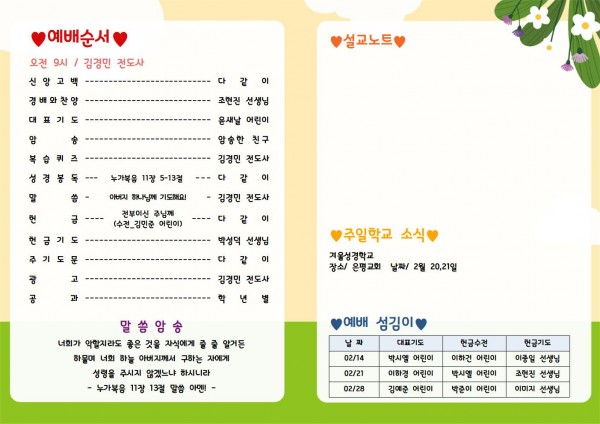 ♥예배순서♥
오전 9시 / 김경민 전도사
신 앙 고 백 ---------------------------- 다 같 이
경 배 와 찬 양 ---------------------------- 조현진 선생님
대 표 기 도 ---------------------------- 윤새날 어린이
암 송 ---------------------------- 암송한 친구
복 습 퀴 즈 ---------------------------- 김경민 전도사
성 경 봉 독 --- 누가복음 11장 5-13절 --- 다 같 이
말 씀 - 아버지 하나님께 기도해요! - 김경민 전도사
헌 금 ---- 전부이신 주님께 (수전_김민준 어린이) ---- 다 같 이
헌 금 기 도 ---------------------------- 박성덕 선생님
주 기 도 문 ---------------------------- 다 같 이
광 고 ---------------------------- 김경민 전도사
공 과 ---------------------------- 학 년 별
말 씀 암 송
너희가 악할지라도 좋은 것을 자식에게 줄 줄 알거든
하물며 너희 하늘 아버지께서 구하는 자에게
성령을 주시지 않겠느냐 하시니라
- 누가복음 11장 13절 말씀 아멘! -
♥설교노트♥
♥주일학교 소식♥
겨울성경학교
장소/ 은평교회 날짜/ 2월 20,21일
♥예배 섬김이♥
날 짜 대표기도 헌금수전 헌금기도
02/14 박시엘 어린이 이하건 어린이 이종일 선생님
02/21 이하경 어린이 박시엘 어린이 조현진 선생님
02/28 김예준 어린이 박준이 어린이 이미지 선생님